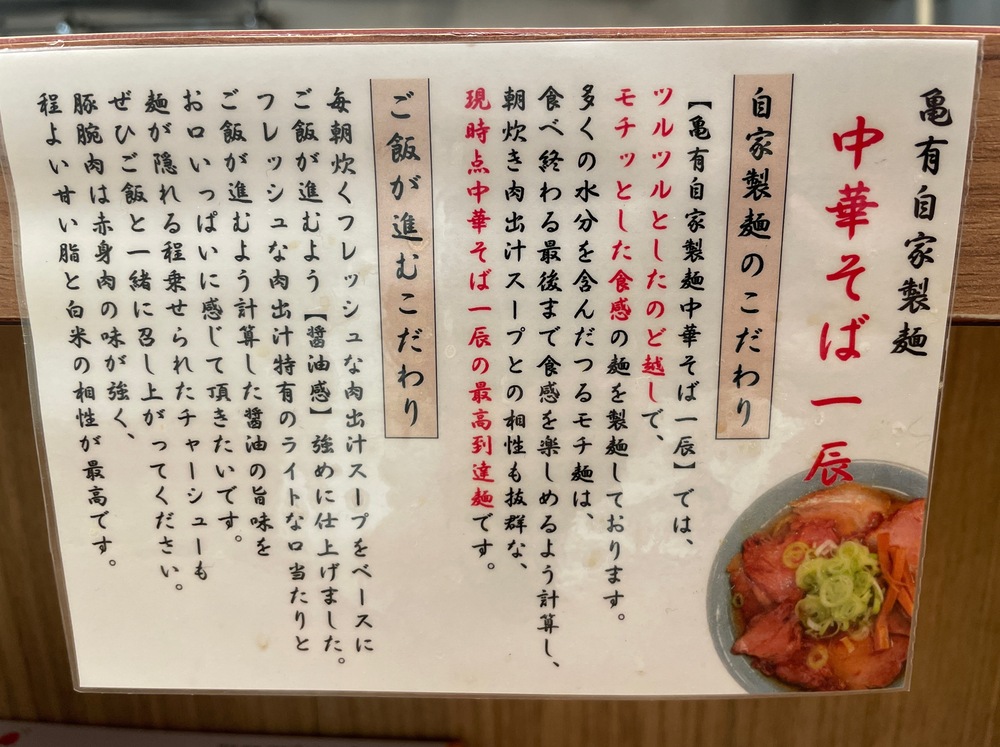 亀有自家製麺
中華そば一辰
自家製麺のこだわり
【亀有自家製麺中華そば一辰】では、
ツルツルとしたのど越しで、
モチッとした食感の麺を製麺しております。
多くの水分を含んだつるモチ麺は、
食べ終わる最後まで食感を楽しめるよう計算し、
朝炊き肉出汁スープとの相性も抜群な、
現時点中華そば一辰の最高到達麺です。
ご飯が進むこだわり
毎朝炊くフレッシュな肉出汁スープをベースに
ご飯が進むよう【醤油感】強めに仕上げました。
フレッシュな肉出汁特有のライトな口当たりと
ご飯が進むよう計算した醤油の旨味を
お口いっぱいに感じて頂きたいです。
麺が隠れる程乗せられたチャーシューも
ぜひご飯と一緒に召し上がってください。
豚腕肉は赤身肉の味が強く、
程よい甘い脂と白米の相性が最高です。